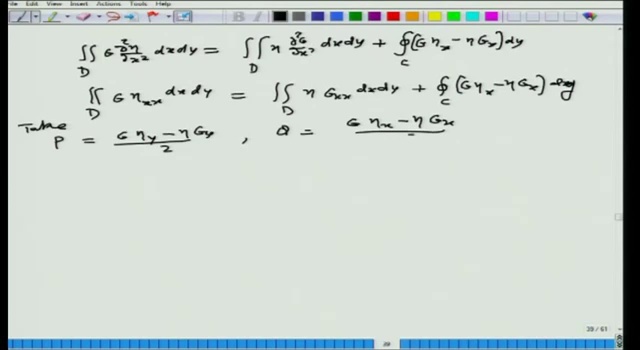 File View Insert Actions Tools Help
∬_D G ∂²η/∂x² dx dy = ∬_D η ∂²G/∂x² dx dy + ∮_C (G η_x − η G_x) dy
∬_D G η_xx dx dy = ∬_D η G_xx dx dy + ∮_C (G η_x − η G_x) dy
Take P = (G η_y − η G_y)/2 , Q = (G η_x − η G_x)/
39 / 61
39